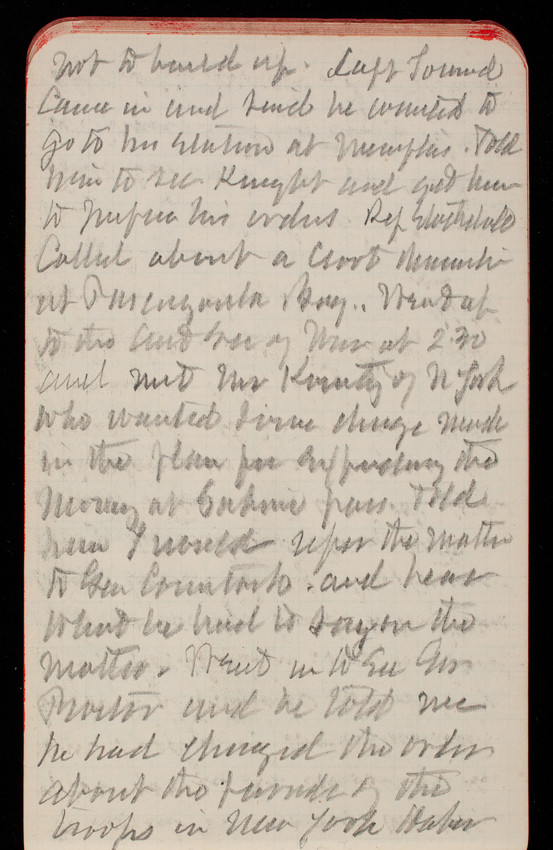 not to build up. Capt Townsend
Came in and said he wanted to
go to his station at Memphis. Told
him to see Knight and get him
to prepare his orders. Rep
Called about a
at Pascagoula Bay. Went up
to the Asst Sec of War at 2.30
and met Mr of N York
who wanted some change made
in the plan for expending the
Money at Sabine pass. Told
him I would refer the matter
to Gen Comstock. and hear
what he had to say on the
matter. Went in to see Mr
Proctor and he told me
he had changed the order
about the parade of the
troops in New York Harbor